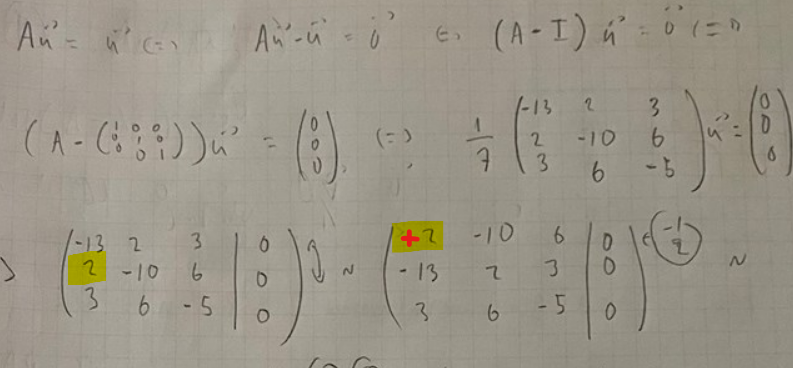 Au⃗ = u⃗ (=) Au⃗ - u⃗ = 0⃗ (=) (A - I) u⃗ = 0⃗ (=)
(A - (1 0 0; 0 1 0; 0 0 1)) u⃗ = (0; 0; 0), (=) 1/7 (-13 2 3; 2 -10 6; 3 6 -5) u⃗ = (0; 0; 0)
(-13 2 3 | 0; 2 -10 6 | 0; 3 6 -5 | 0) ~ (+2 -10 6 | 0; -13 2 3 | 0; 3 6 -5 | 0) (-1/2) ~